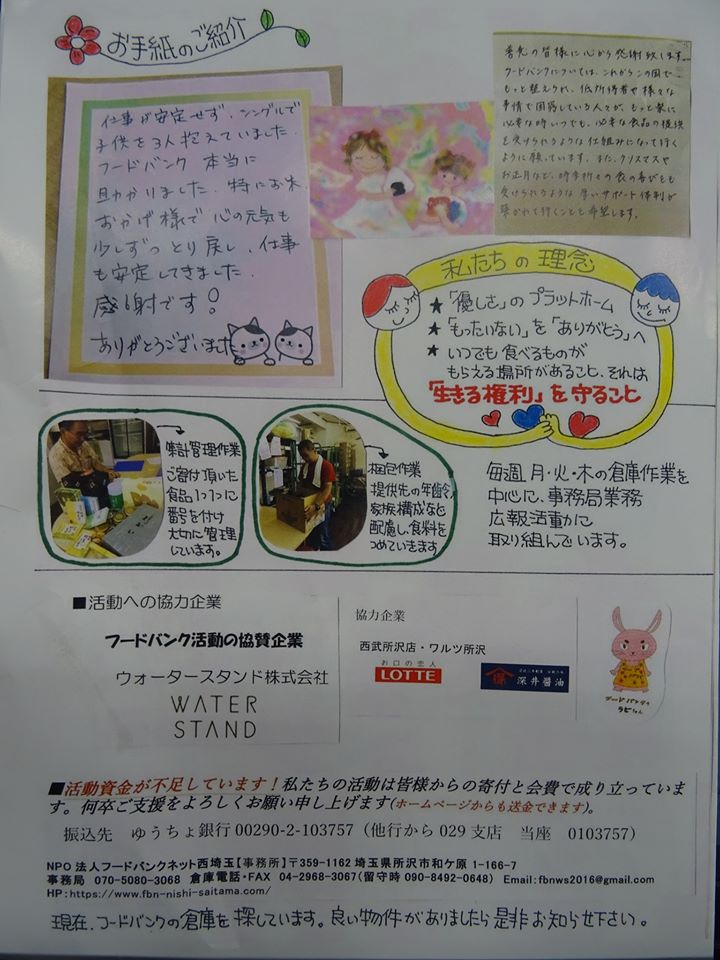 お手紙のご紹介
仕事が安定せず、シングルで
子供を3人抱えていました。
フードバンク 本当に
助かりました。特にお米
おかげ様で心の元気も
少しずつとり戻し、仕事
も安定してきました。
感謝です!
ありがとうございました
の皆様に心から感謝致します。
フードバンクについては、これからこの国で
もっと整えられ、低所得者や様々な
事情で困窮している人々が、もっと楽に
必要な時いつでも、必要な食品の提供
を受けられるような仕組みになって行く
ように願っています。また、クリスマスや
お正月など、時季折々の食の喜びをも
受けられるような厚いサポート体制が
築かれて行くことを希望します。
私たちの理念
★「優しさ」のプラットホーム
★「もったいない」を「ありがとう」へ
★いつでも食べるものが
もらえる場所があること、それは
「生きる権利」を守ること
集計管理作業
ご寄付頂いた
食品1つ1つに
番号を付け
大切に管理
しています。
梱包作業
提供先の年齢
家族構成など
配慮し、食料を
つめていきます
毎週月・火・木の倉庫作業を
中心に、事務局業務
広報活動に
取り組んでいます。
■活動への協力企業
フードバンク活動の協賛企業
ウォータースタンド株式会社
WATER
STAND
協力企業
西武所沢店・ワルツ所沢
お口の恋人
LOTTE
深井醤油
フードバンクの
■活動資金が不足しています!私たちの活動は皆様からの寄付と会費で成り立っていま
す。何卒ご支援をよろしくお願い申し上げます(ホームページからも送金できます)。
振込先 ゆうちょ銀行 00290-2-103757(他行から 029 支店 当座 0103757)
NPO 法人フードバンクネット西埼玉【事務所】〒359-1162 埼玉県所沢市和ケ原 1-166-7
事務局 070-5080-3068 倉庫電話・FAX 04-2968-3067(留守時 090-8492-0648) Email:fbnws2016@gmail.com
HP:https://www.fbn-nishi-saitama.com/
現在、フードバンクの倉庫を探しています。良い物件がありましたら是非お知らせ下さい。